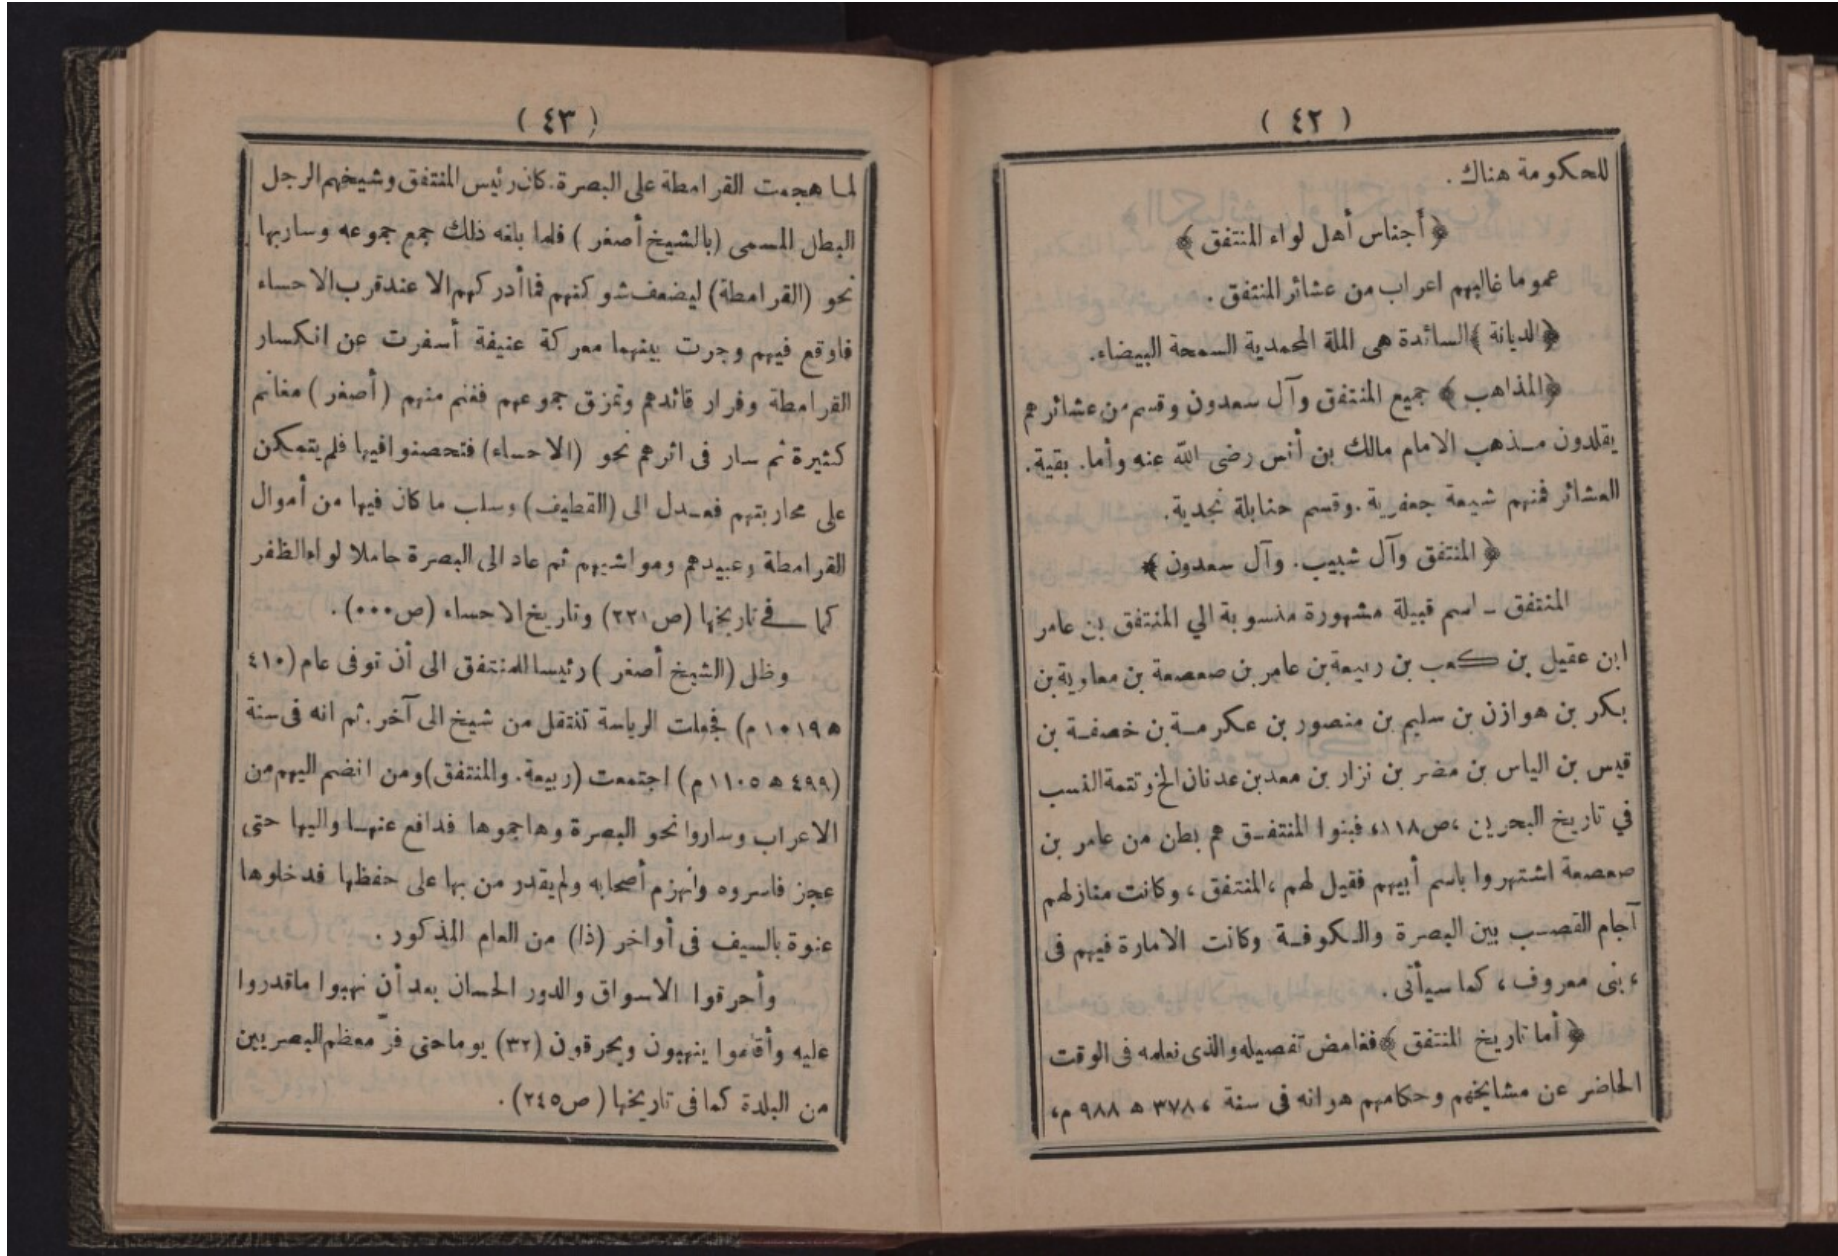 ( ٤٢ )
للحكومة هناك .
﴿ أجناس أهل لواء المنتفق ﴾
عموما غالبهم اعراب من عشائر المنتفق .
﴿ الديانة ﴾ السائدة هى الملة المحمدية السمحة البيضاء.
﴿ المذاهب ﴾ جميع المنتفق وآل سعدون وقسم من عشائرهم
يقلدون مذهب الامام مالك بن أنس رضى الله عنه وأما. بقية.
العشائر فمنهم شيعة جعفرية .وقسم حنابلة نجدية.
﴿ المنتفق وآل شبيب. وآل سعدون ﴾
المنتفق ـ اسم قبيلة مشهورة منسوبة الي المنتفق بن عامر
ابن عقيل بن كعب بن ربيعة بن عامر بن صعصعة بن معاوية بن
بكر بن هوازن بن سليم بن منصور بن عكرمة بن خصفة بن
قيس بن الياس بن مضر بن نزار بن معد بن عدنان الخ وتتمة النسب
في تاريخ البحرين ،ص١١٨، فبنوا المنتفق هم بطن من عامر بن
صعصعة اشتهروا باسم أبيهم فقيل لهم ،المنتفق ، وكانت منازلهم
آجام القصب بين البصرة والكوفة وكانت الامارة فيهم فى
، بنى معروف ، كما سيأتى .
﴿ أما تاريخ المنتفق ﴾ فغامض تفصيله والذى نعلمه فى الوقت
الحاضر عن مشايخهم وحكامهم هو انه فى سنة ، ٣٧٨ ه ٩٨٨ م،
( ٤٣ )
لما هجمت القرامطة على البصرة. كان رئيس المنتفق وشيخهم الرجل
البطل المسمى (بالشيخ أصفر ) فلما بلغه ذلك جمع جموعه وسار بها
نحو (القرامطة) ليضعف شوكتهم فما أدركهم الا عند قرب الاحساء
فاوقع فيهم وجرت بينهما معركة عنيفة أسفرت عن انكسار
القرامطة وفرار قائدهم وتمزق جموعهم فغنم منهم ( أصفر ) مغانم
كثيرة ثم سار فى اثرهم نحو (الاحساء) فتحصنوا فيها فلم يتمكن
على محاربتهم فعدل الى (القطيف) وسلب ما كان فيها من أموال
القرامطة وعبيدهم ومواشيهم ثم عاد الى البصرة حاملا لواء الظفر
كما فى تاريخها (ص٢٢١) وتاريخ الاحساء (ص٠٠٠) .
وظل (الشيخ أصفر ) رئيسا للمنتفق الى أن توفى عام (٤١٠
ه ١٠١٩ م) فجعلت الرياسة تنتقل من شيخ الى آخر. ثم انه فى سنة
(٤٩٩ ه ١١٠٥ م ) اجتمعت (ربيعة. والمنتفق) ومن انضم اليهم من
الاعراب وساروا نحو البصرة وهاجموها فدافع عنها واليها حتى
عجز فاسروه وانهزم أصحابه ولم يقدر من بها على حفظها فدخلوها
عنوة بالسيف فى أواخر (ذا) من العام المذكور .
وأحرقوا الاسواق والدور الحسان بعد أن نهبوا ماقدروا
عليه وأقاموا ينهبون ويحرقون (٣٢) يوما حتى فرّ معظم البصريين
من البلدة كما فى تاريخها ( ص٢٤٥) .